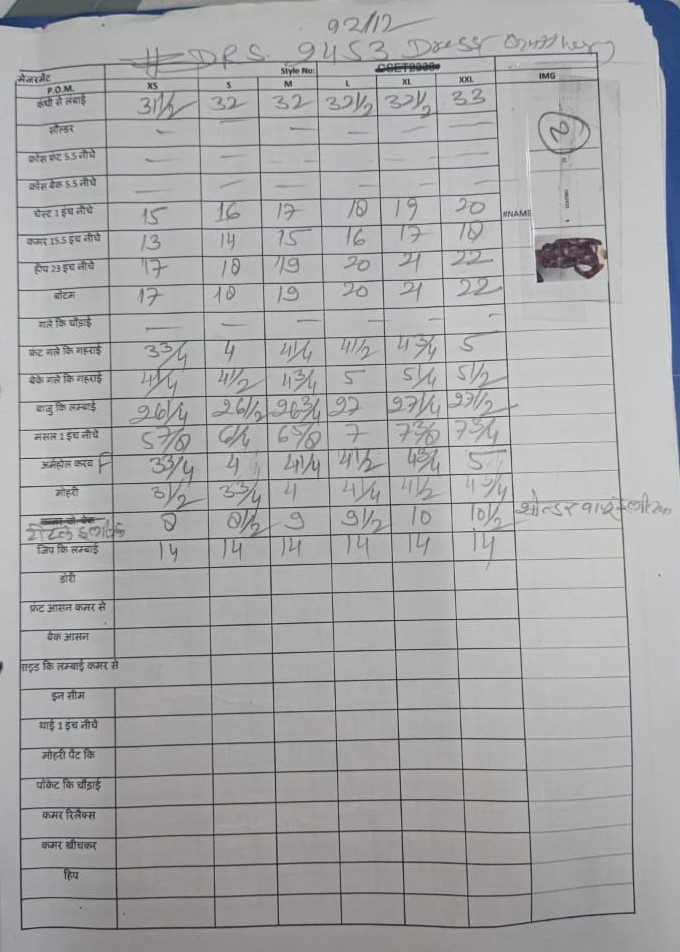 92/12
# DRS. 9453 Dress
Style No:
मेजरमेंट
P.O.M. XS S M L XL XXL IMG
कंधी से लंबाई 31 1/2 32 32 32 1/2 32 1/2 33
सोल्डर — — — — — —
क्रोस फ्रंट 5.5 नीचे — — — — — —
क्रोस बेक 5.5 नीचे — — — — — —
चेस्ट 1 इंच नीचे 15 16 17 18 19 20 #NAME
कमर 15.5 इंच नीचे 13 14 15 16 17 18
हीप 23 इंच नीचे 17 18 19 20 21 22
बोटम 17 18 19 20 21 22
गले कि चौड़ाई — — — — — -
फ्रंट गले कि गहराई 3 3/4 4 4 1/4 4 1/2 4 3/4 5
बेक गले कि गहराई 4 1/4 4 1/2 4 3/4 5 5 1/4 5 1/2
बाजु कि लम्बाई 26 1/4 26 1/2 26 3/4 27 27 1/4 27 1/2
मसल 1 इंच नीचे 5 7/8 6 1/4 6 5/8 7 7 3/8 7 3/4
अर्महोल करव F 3 3/4 4 4 1/4 4 1/2 4 3/4 5
मोहरी 3 1/2 3 3/4 4 4 1/4 4 1/2 4 3/4
8 8 1/2 9 9 1/2 10 10 1/2
जिप कि लम्बाई 14 14 14 14 14 14
डोरी
फ्रंट आसन कमर से
बेक आसन
साइड कि लम्बाई कमर से
इन सीम
थाई 1 इंच नीचे
मोहरी पेंट कि
पॉकेट कि चौड़ाई
कमर रिलैक्स
कमर खीचकर
हिप
2